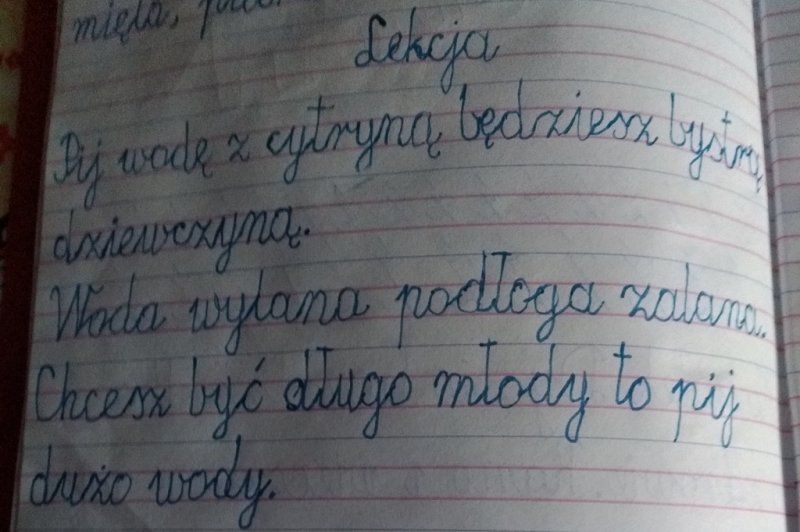 mięta,
Lekcja
Pij wodę z cytryną będziesz bystrą
dziewczyną.
Woda wylana podłoga zalana.
Chcesz być długo młody to pij
dużo wody.